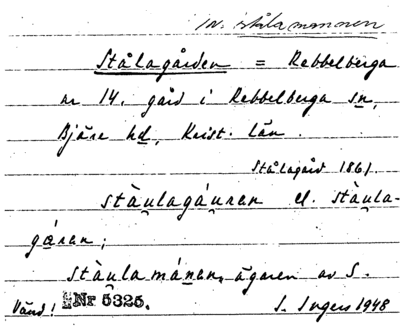 jv. stålamannen
Stålagården = Rebbelberga
nr 14. gård i Rebbelberga sn,
Bjäre hd, Krist. län.
Stålagård 1861
stàu̯lagáu̯ren el. stàu̯la-
gá̤ren;
stàu̯lamánen, ägaren av S.
Vänd! Nr 5325. I. Ingers 1948